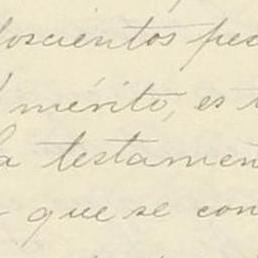 doscientos pes
mérito, es
la testamen
que se con